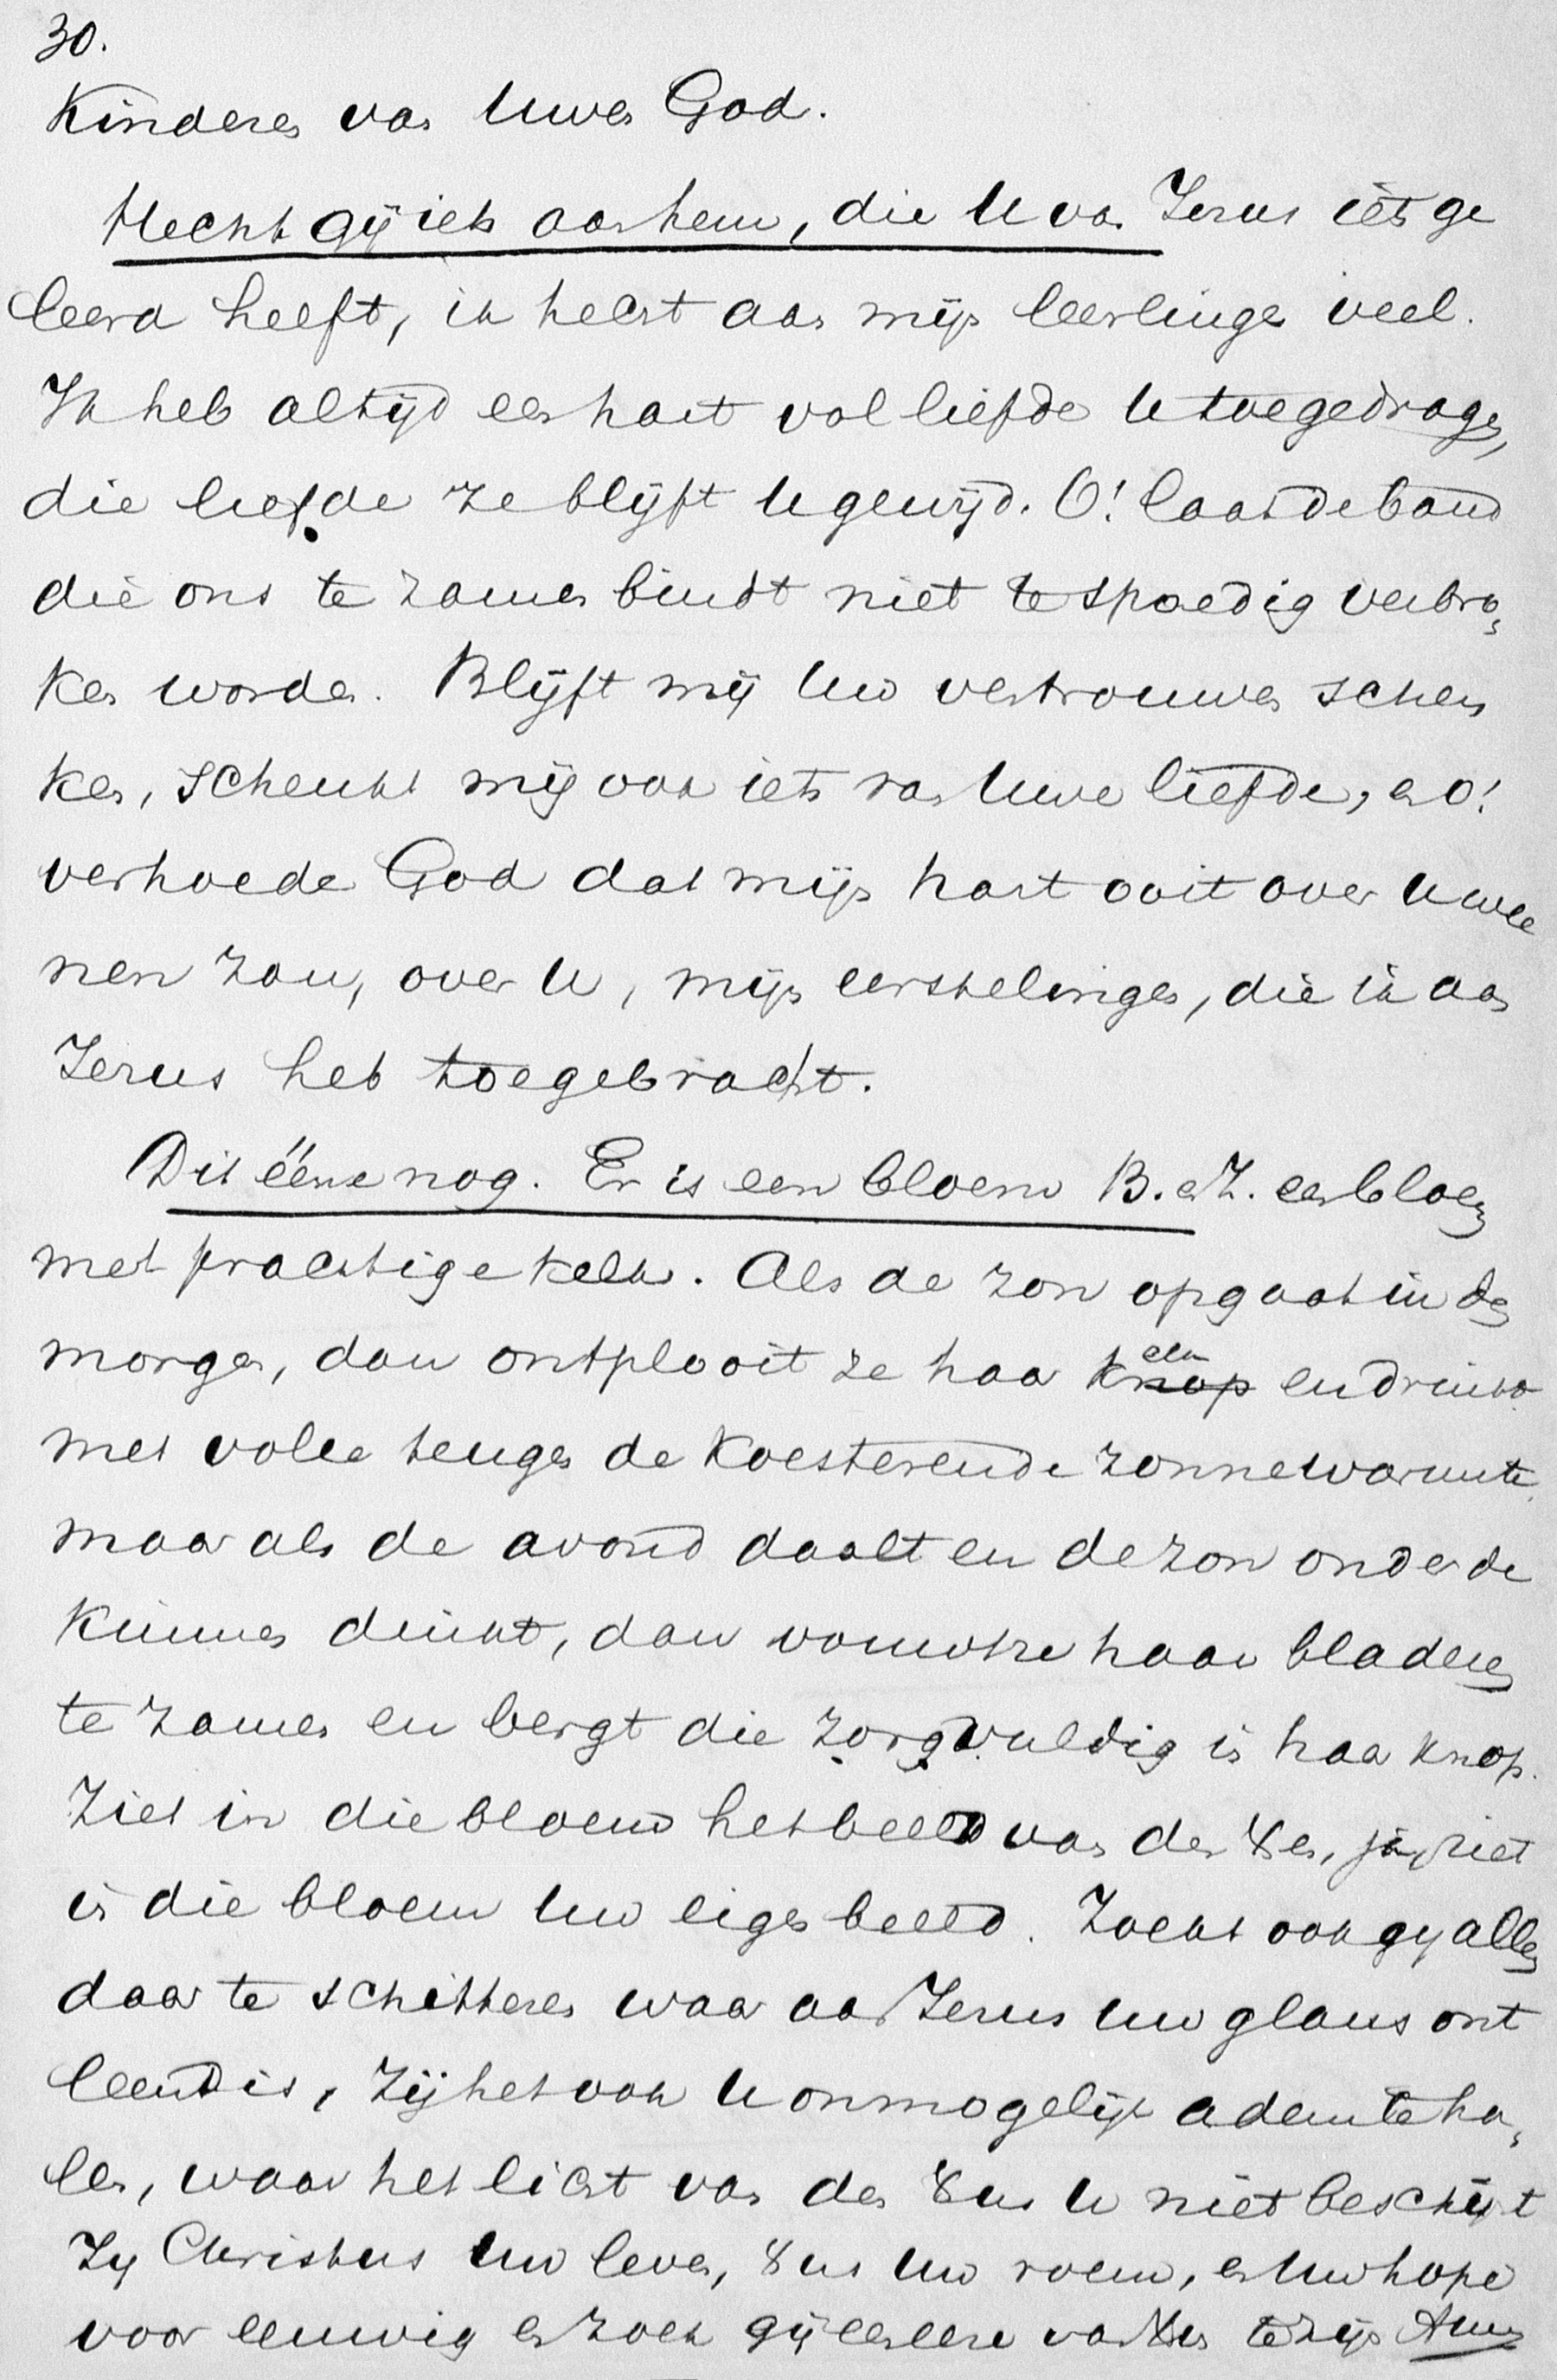 30.
Kinderen van Uwen God.
Hecht gij iets aan hem, die U van Jezus iets ge
leerd heeft, ik hecht aan mijn leerlingen veel.
Ik heb altijd een hart vol liefde U toegedragen,
die liefde ze blijft U gewijd. O! laat de band
die ons te zamen bindt niet te spoedig verbro,
ken worden. Blijft mij Uw vertrouwen schen
ken, schenkt mij ook iets van Uwe liefde, en o!
verhoede God dat mijn hart ooit over U wee
nen zou, over U, mijn eerstelingen, die ik aan
Jezus heb toegebracht.
Dit ééne nog. Er is een bloem B. en Z. een bloem
met prachtige kelk. Als de zon opgaat in den
morgen, dan ontplooit ze haar kelk en drinkt
met volle teugen de koesterende zonnewarmte,
maar als de avond daalt en de zon onder de
kimmen duikt, dan vouwt ze haar bladeren
te zamen en bergt die zorgvuldig in haar knop.
Ziet in die bloem het beeld van den Xen, ja, ziet
in die bloem Uw eigen beeld. Zoekt ook gij alleen
daar te schitteren waar aan Jezus Uw glans ont
leend is, zij het ook U onmogelijk adem te ha,
len, waar het licht van den Xus U niet beschijnt
Zij Christus Uw leven, Xus Uw roem, en Uw hope
voor eeuwig en zoek gij een eere van Xus te zijn Amen